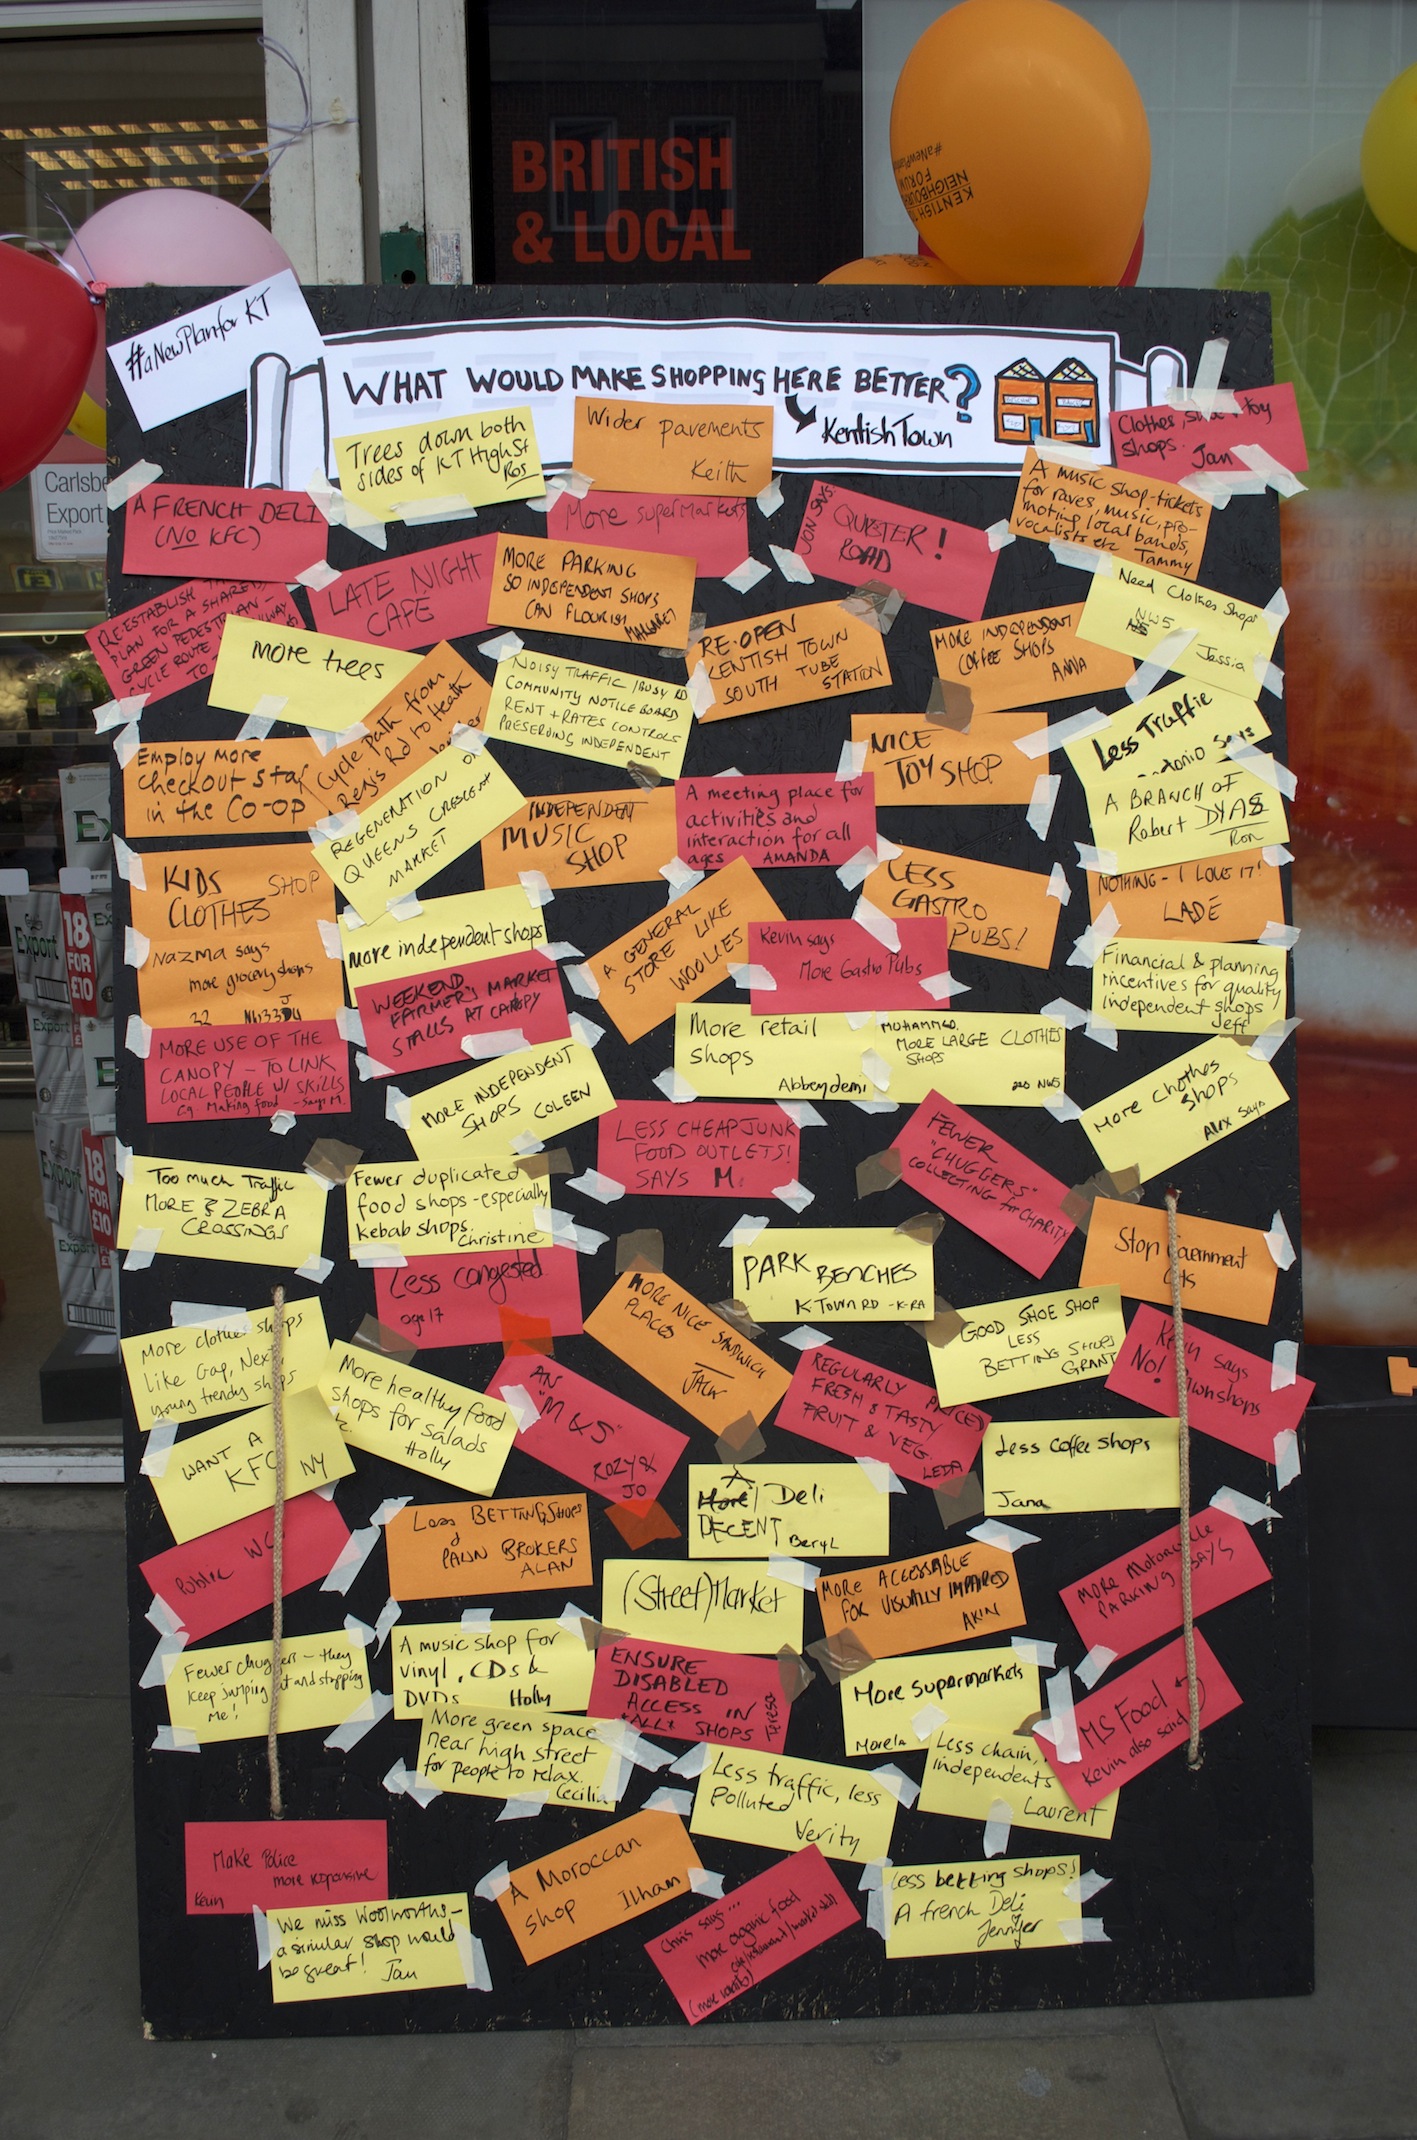 BRITISH
& LOCAL
#aNewPlanfor
KENTISH
NEIGHBOUR
FORUM
Carlsbe
Export
#aNewPlanfor KT
WHAT WOULD MAKE SHOPPING HERE BETTER?
Kentish Town
Trees down both
sides of KT High St
Ros
Wider pavements
Keith
Clothes, shoe + toy
shops.
Jan
A FRENCH DELI
(NO KFC)
More supermarkets
JON SAYS:
QUIETER!
ROAD
A music shop-tickets
for raves, music, pro-
moting local bands,
vocalists etc Tammy
RE-ESTABLISH
PLAN FOR A SHARED,
GREEN PEDESTRIAN-
CYCLE ROUTE
TO
LATE NIGHT
CAFE
MORE PARKING
SO INDEPENDENT SHOPS
CAN FLOURISH
MARGARET
RE-OPEN
KENTISH TOWN
SOUTH TUBE
STATION
MORE INDEPENDENT
COFFEE SHOPS
ANNA
Need Clothes Shops
NW5
Jessia
More trees
Cycle path from
Regis Rd to Heath
NOISY TRAFFIC / BUSY RD
COMMUNITY NOTICE BOARD
RENT + RATES CONTROLS
PRESERVING INDEPENDENT
Less Traffic
Antonio Says
Employ more
checkout staf
in the Co-op
REGENERATION OF
QUEENS CRESCENT
MARKET
INDEPENDENT
MUSIC
SHOP
A meeting place for
activities and
interaction for all
ages AMANDA
NICE
TOY SHOP
A BRANCH OF
Robert DYAS
Ron
KIDS SHOP
CLOTHES
More independent shops
A GENERAL
STORE LIKE
WOOLIES
LESS
GASTRO
PUBS!
NOTHING - I LOVE IT!
LADE
Nazma says
more grocery shops
32
WEEKEND
FARMER'S MARKET
STALLS AT CANOPY
Kevin says
More Gastro Pubs
Financial & planning
incentives for quality
independent shops
Jeff
MORE USE OF THE
CANOPY - TO LINK
LOCAL PEOPLE W/ SKILLS
eg Making food - Says M.
MORE INDEPENDENT
SHOPS COLEEN
More retail
shops
Abbeydemi
MUHAMMED.
MORE LARGE CLOTHES
SHOPS
NW5
More clothes
shops
Alex Says
LESS CHEAP JUNK
FOOD OUTLETS!
SAYS M.
FEWER
"CHUGGERS"
COLLECTING for CHARITY
Too much Traffic
MORE ZEBRA
CROSSINGS
Fewer duplicated
food shops - especially
kebab shops.
Christine
Less congested
age 17
PARK BENCHES
K.TOWN RD -K-RA
Stop Government
Cuts
More clothes shops
like Gap, Next,
young trendy shops
More healthy food
shops for salads
Holly
MORE NICE SANDWICH
PLACES
JACK
GOOD SHOE SHOP
LESS
BETTING SHOPS
GRANT
Kevin says
NO!
AN
"M&S"
ROZY &
JO
REGULARLY PRICES
FRESH & TASTY
FRUIT & VEG.
LEDA
WANT A
KFC
NY
Less coffee shops
Jana
A
More Deli
DECENT Beryl
Less BETTING SHOPS
&
PAWN BROKERS
ALAN
Public WC
(Street) Market
MORE ACCESSABLE
FOR VISUALLY IMPAIRED
AKIN
MORE Motorcycle
PARKING BAYS
Fewer chuggers - they
keep jumping out and stopping
me!
A music shop for
vinyl, CDs &
DVDs Holly
ENSURE
DISABLED
ACCESS IN
*ALL* SHOPS
Teresa
More supermarkets
Morela
MS Food
Kevin also said
More green space
near high street
for people to relax.
Cecilia
Less traffic, less
Polluted
Verity
Less chain,
independents
Laurent
Make Police
more responsive
Kevin
We miss Woolworths -
a similar shop would
be great! Jan
A Moroccan
shop Ilham
Chris says...
more organic food
(more variety)
Less betting shops!
A french Deli
Jennifer
18
FOR
£10
Export
18
FOR
£10
Export